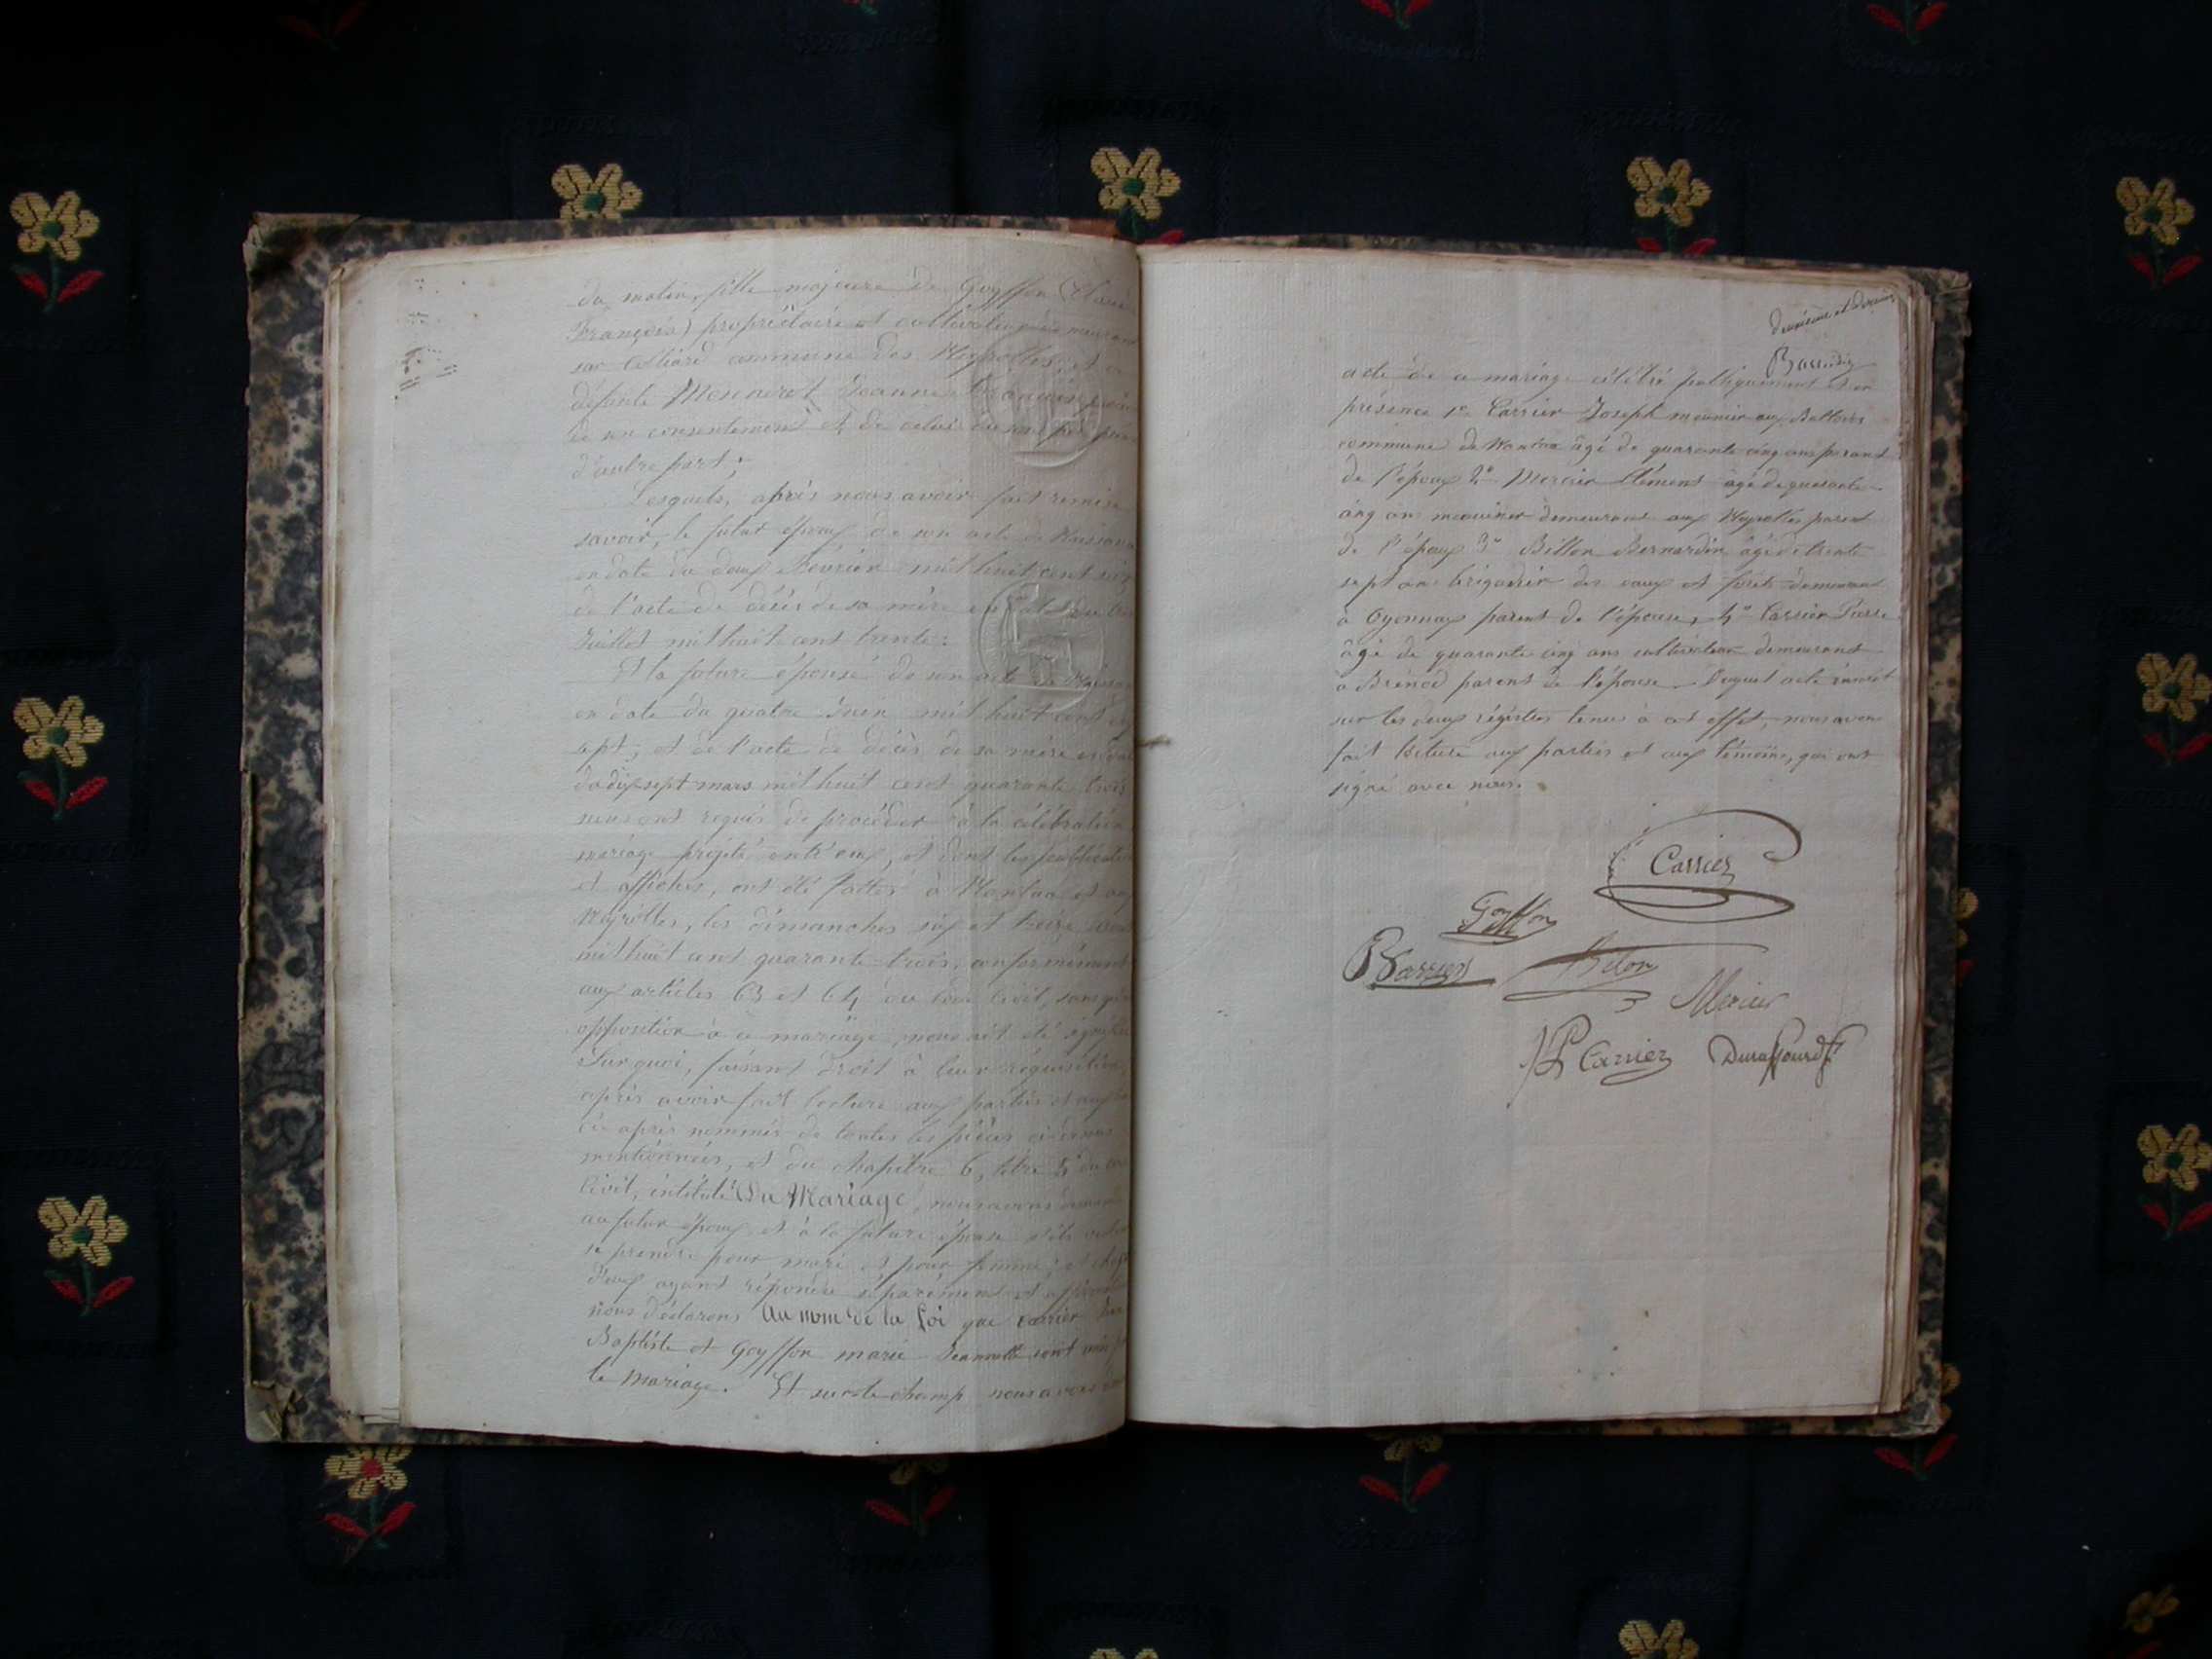 du matin, fille majeure de Goyffon Claude
François) propriétaire et cultivateur demeurant
sur commune des Neyrolles, et
défunte Mermerot Jeanne Françoise
de son consentement et de celui
d'autre part;
Lesquels, après nous avoir fait remise
savoir, le futur époux de son acte de Naissance
en date du deux Février mil huit cent
de l'acte de décès de sa mère en date du
Juillet mil huit cent trente:
Et la future épouse de son acte de
en date du quatre mil huit cent
sept; et de l'acte de décès de sa mère en
du dix sept mars mil huit cent quarante trois
nous ont requis de procéder à la célébration
mariage projeté entr'eux, et dont les publications
et affiches, ont été faites à Nantua et aux
Neyrolles, les dimanches six et treize
mil huit cent quarante trois, conformément
aux articles 63 et 64 du Code Civil, sans
opposition à ce mariage nous ait été
Sur quoi, faisant droit à leur réquisition
après avoir fait lecture aux parties et aux
ci après nommés de toutes les pièces ci dessus
mentionnées, et du chapitre 6, titre 5 du
Civil, intitulé Du Mariage, nous avons
au futur époux et à la future épouse s'ils
se prendre pour mari et pour femme; et
d'eux ayant répondu séparément et
nous déclarons Au nom de la Loi que Carrier
Baptiste et Goyffon marie Jeannette sont
le Mariage. Et sur le champ nous avons
deuxième et dernier
acte de ce mariage célébré publiquement et en
présence 1° Carrier Joseph meunier aux Battoirs
commune de Nantua âgé de quarante cinq ans parent
de l'époux 2° Mercier Clément âgé de quarante
cinq ans demeurant aux Neyrolles parent
de l'époux 3° Billon Bernardin âgé de trente
sept ans brigadier des eaux et forêts demeurant
à Oyonnax parent de l'épouse, 4° Carrier Pierre
âgé de quarante cinq ans cultivateur demeurant
à Brénod parent de l'épouse. Duquel acte inscrit
sur les deux régistres tenus à cet effet, nous avons
fait lecture aux parties et aux témoins, qui ont
signé avec nous.
Carrier
Goyffon
Carrier
Bilon
Mercier
Carrier Duraffourd